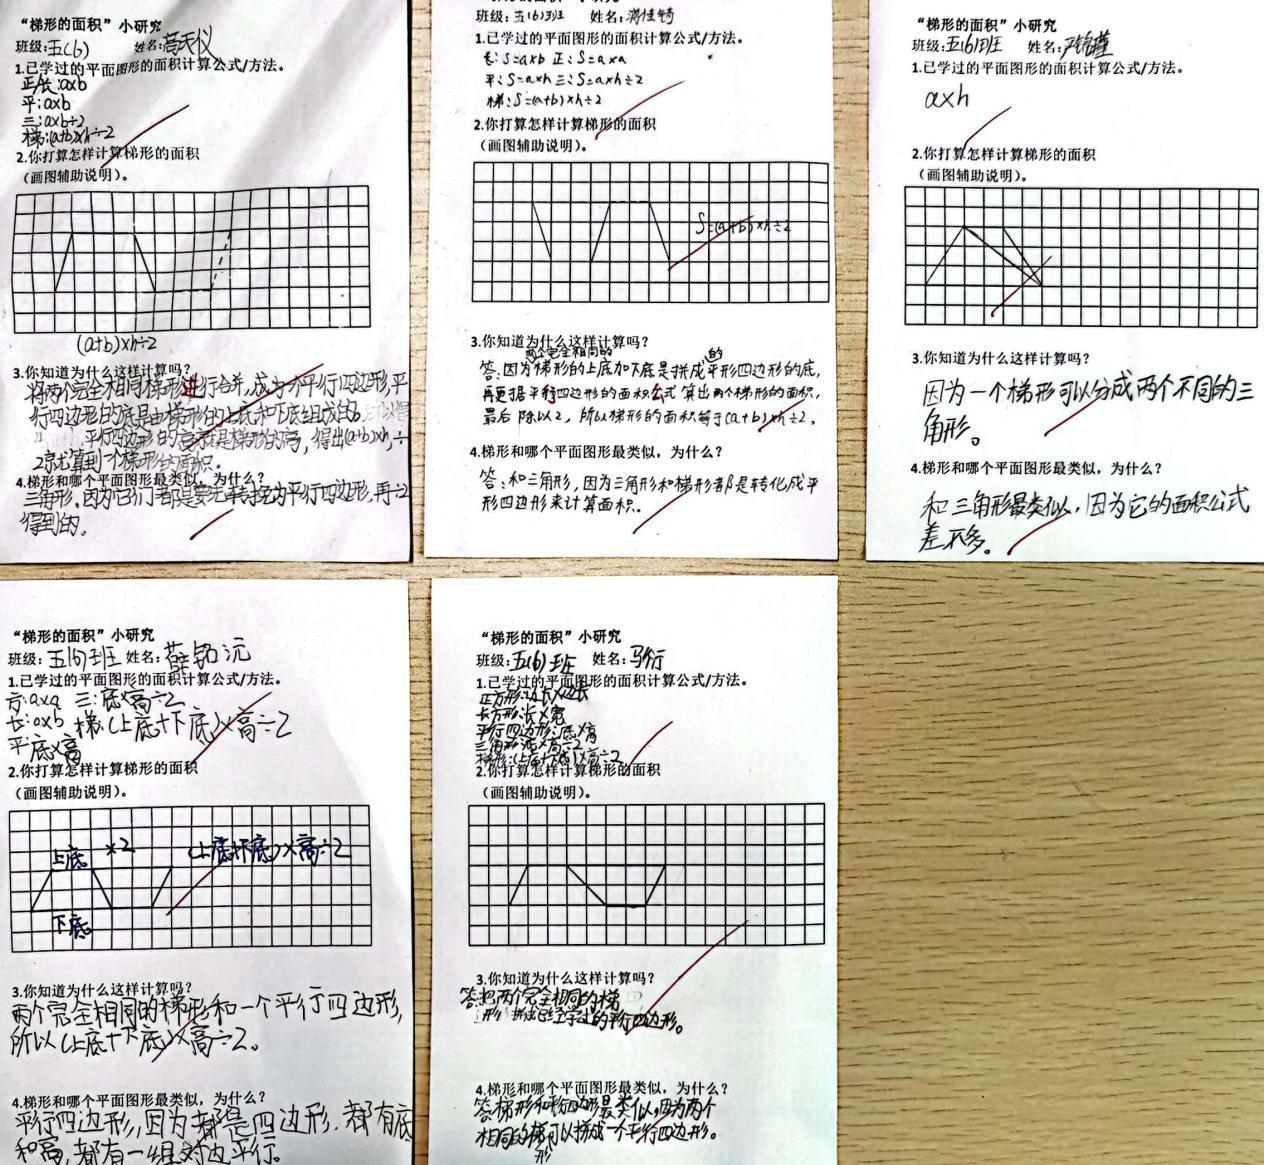 “梯形的面积”小研究
班级:五(6) 姓名:高天仪
1.已学过的平面图形的面积计算公式/方法。
正/长:a×b
平:a×b
三:a×b÷2
梯:(a+b)×h÷2
2.你打算怎样计算梯形的面积
（画图辅助说明）。
(a+b)×h÷2
3.你知道为什么这样计算吗?
将两个完全相同梯形进行合并,成为了平行四边形,平
行四边形的底是由梯形的上底和下底组成的。
平行四边形的高就是梯形的高,得出(a+b)×h,÷
2就算到一个梯形的面积。
4.梯形和哪个平面图形最类似，为什么?
三角形。因为它们都是要先转换为平行四边形,再÷2
得到的。
班级:五(6)班 姓名:
1.已学过的平面图形的面积计算公式/方法。
长:S=a×b 正:S=a×a
平:S=a×h 三:S=a×h÷2
梯:S=(a+b)×h÷2
2.你打算怎样计算梯形的面积
（画图辅助说明）。
S=(a+b)×h÷2
3.你知道为什么这样计算吗?
两个完全相同的
答:因为梯形的上底加下底是拼成的平形四边形的底,
再更据平行四边形的面积公式算出两个梯形的面积,
最后除以2,所以梯形的面积等于(a+b)×h÷2。
4.梯形和哪个平面图形最类似，为什么?
答:和三角形,因为三角形和梯形都是转化成平
形四边形来计算面积。
“梯形的面积”小研究
班级:五(6)班 姓名:严铭瑾
1.已学过的平面图形的面积计算公式/方法。
a×h
2.你打算怎样计算梯形的面积
（画图辅助说明）。
3.你知道为什么这样计算吗?
因为一个梯形可以分成两个不同的三
角形。
4.梯形和哪个平面图形最类似，为什么?
和三角形最类似,因为它的面积公式
差不多。
“梯形的面积”小研究
班级:五(6)班 姓名:薛铭沅
1.已学过的平面图形的面积计算公式/方法。
方:a×a 三:底×高÷2
长:a×b 梯:(上底+下底)×高÷2
平:底×高
2.你打算怎样计算梯形的面积
（画图辅助说明）。
上底 ×2 (上底+下底)×高÷2
下底
3.你知道为什么这样计算吗?
两个完全相同的梯形和一个平行四边形,
所以(上底+下底)×高÷2。
4.梯形和哪个平面图形最类似，为什么?
平行四边形,因为都是四边形,都有底
和高,都有一组对边平行。
“梯形的面积”小研究
班级:五(6)班 姓名:马衍
1.已学过的平面图形的面积计算公式/方法。
正方形:边长×边长
长方形:长×宽
平行四边形:底×高
三角形:底×高÷2
梯形:(上底+下底)×高÷2
2.你打算怎样计算梯形的面积
（画图辅助说明）。
3.你知道为什么这样计算吗?
答:把两个完全相同的梯
形拼成已经学过的平行四边形。
4.梯形和哪个平面图形最类似，为什么?
答:梯形和平行四边形最类似,因为两个
相同的梯形可以拼成一个平行四边形。